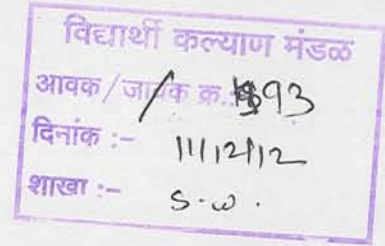 विद्यार्थी कल्याण मंडळ
आवक/जावक क्र.: 93
दिनांक :- 11/12/12
शाखा :- S.W.